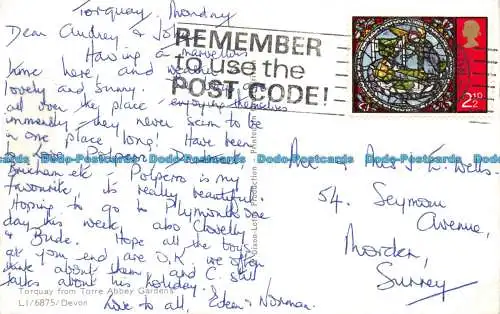 Torquay Monday
Dear Audrey & Jo
Having a marvellous
time here and weather
lovely and sunny.
all over the place enjoying themselves
immensely they never seem to be
in one place long! Have been
to Looe, Polperro,
Brixham etc Polperro is my
favourite, its really beautiful.
Hoping to go to Plymouth one
day this week, also Clovelly
& Bude. Hope all the boys
at your end are O.K. we often
think about them and C. still
talks about his holiday.
Love to all, Norman.
Torquay from Torre Abbey Gardens
L1/6875/Devon
REMEMBER
to use the
POST CODE!
2½D
Mr & Mrs J E. Wells.
54. Seymour
Avenue,
Morden,
Surrey
Dodo-Postcards